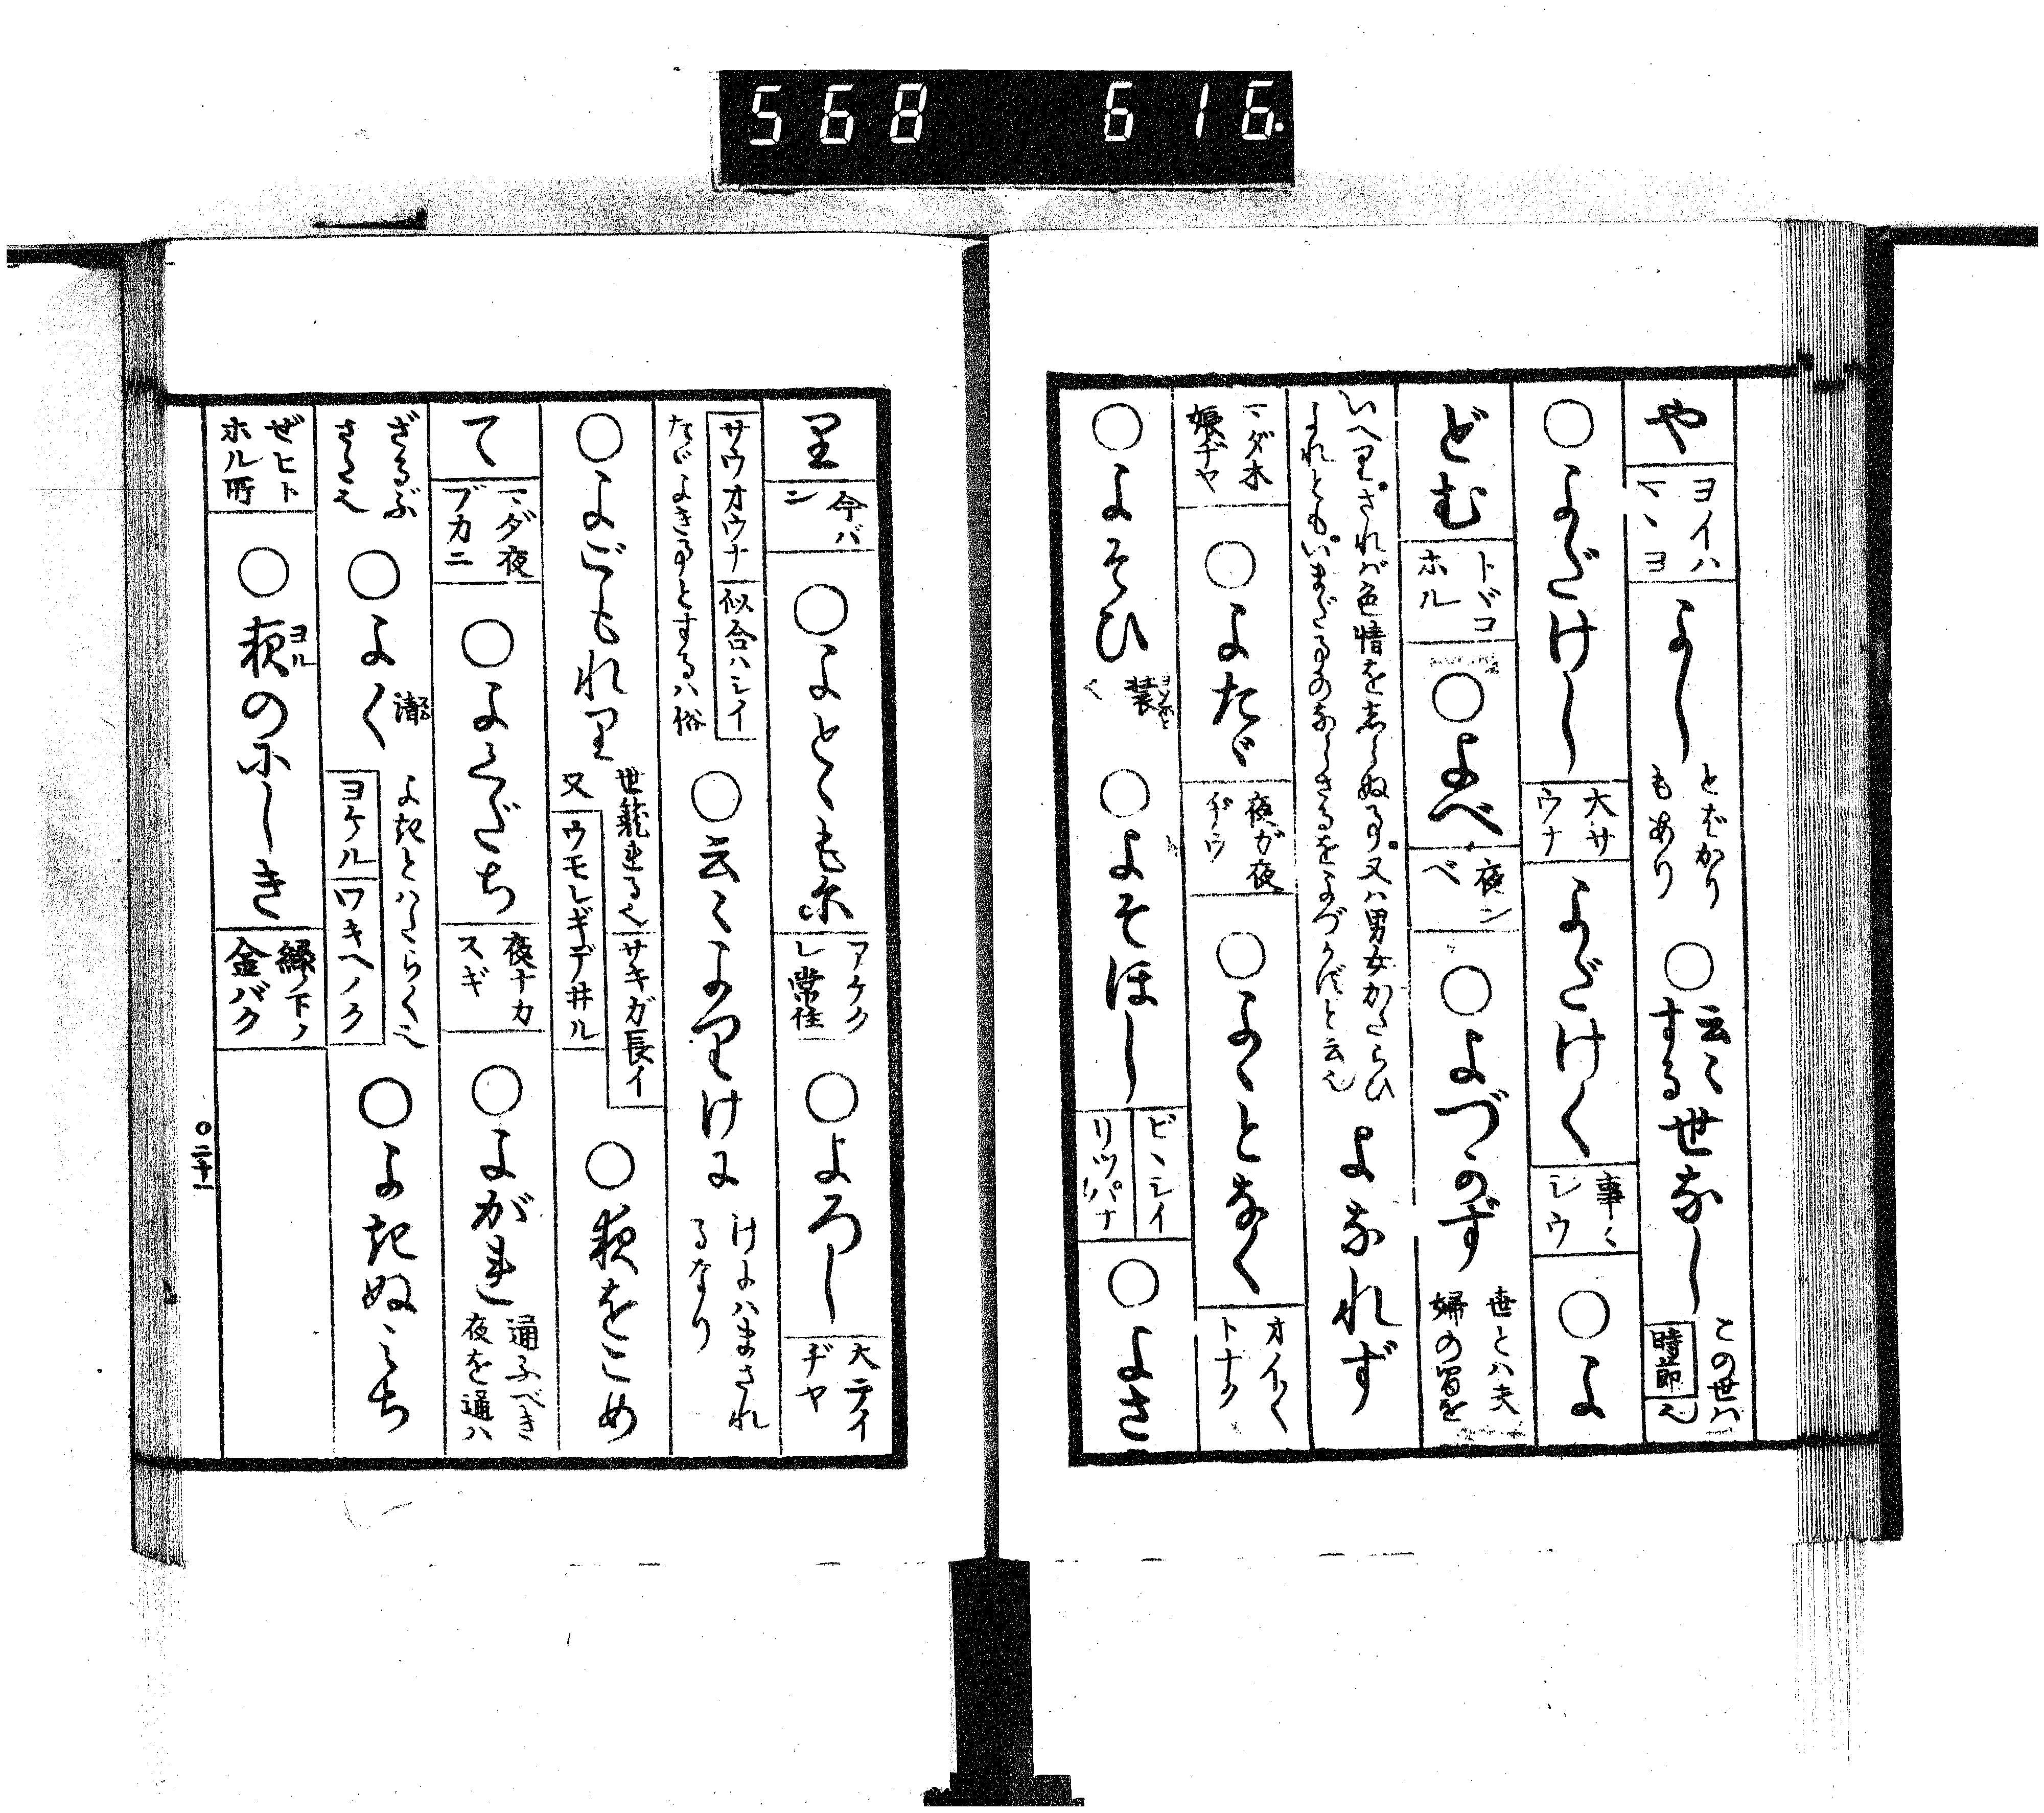 568 616.
や ヨイハ マヽヨ よし とばかり もあり ○云々する世なし この世ハ 時節 也
○よだけし 大サウナ よだけく 事々シウ ○よ
どむ トヾコホル ○よべ 夜ンベ ○よづかず 世とハ夫婦の習を
いへり されバ色情をしらぬ事 又ハ男女かたらひ よれども いまだ よづかずと云也 よなれず
マダ木娘ヂヤ ○よたゞ 夜ガ夜ヂウ ○よゝとなく オイ〳〵トナク
○よそひ 装 ○よそほし ビヽシイ リツパナ ○よさ
り 今バン ○よとゝもに アケクレ 常住 ○よろし 大テイヂヤ
サウオウナ 似合ハシイ などよき事とするハ俗 ○云々よりけに けにハまされるなり
○よごもれり 世籠れる也 サキガ長イ 又 ウモレギデ井ル ○夜をこめ
て マダ夜ブカニ ○よくだち 夜ナカスギ ○よがれ 通ふべき夜を通ハ
ざるぶさた也 ○よく 避 ヨケル ワキヘノク ○よきぬみち
ぜヒトホル所 ○夜のにしき ヨル 縁ノ下ノ金バク
○二十一